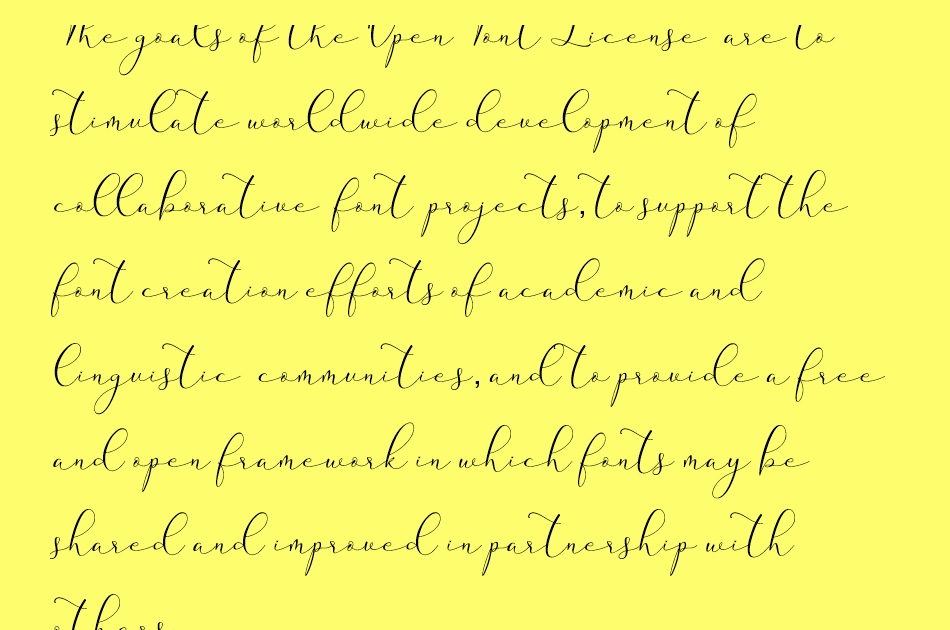 The goals of the Open Font License are to
stimulate worldwide development of
collaborative font projects, to support the
font creation efforts of academic and
linguistic communities, and to provide a free
and open framework in which fonts may be
shared and improved in partnership with
others.